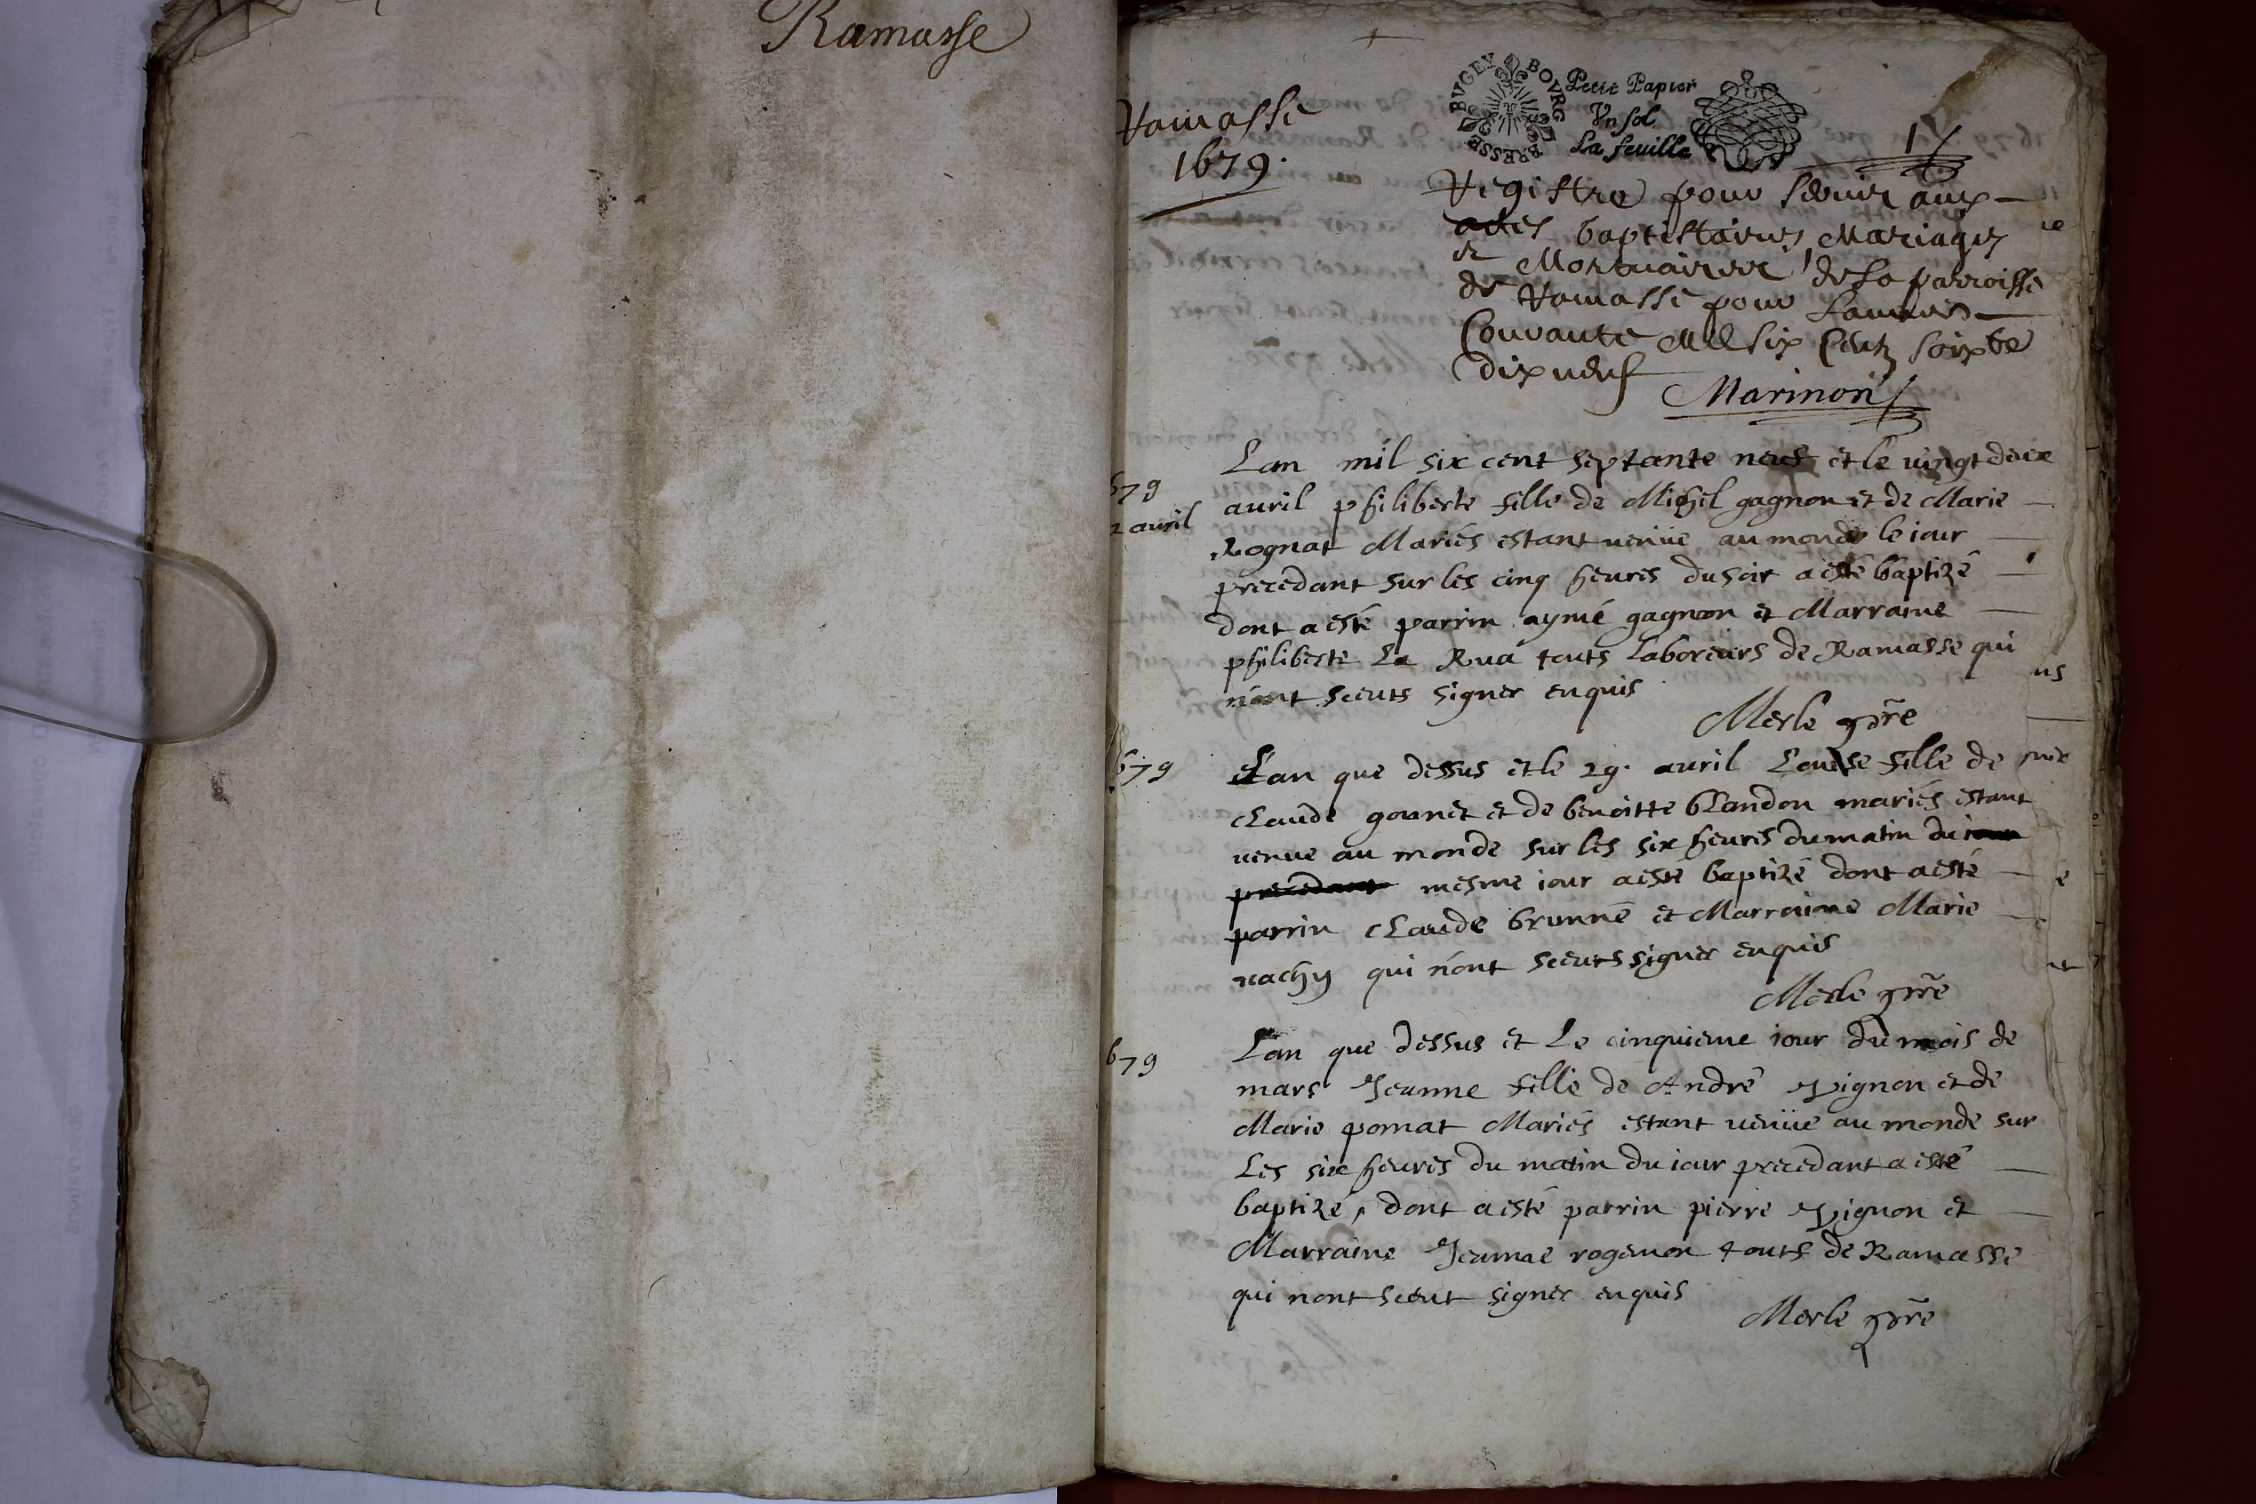 Ramasse
Ramasse
1679.
BVGEY BOVRG BRESSE
Petit Papier
Vn sol
La feuille
1
Registre pour servir aux
actes baptistaires Mariages
et Mortuaires de la parroisse
de Ramasse pour Lannée
Courante Mil six Centz soixte
dix neuf
Marinon
679
2 avril
Lan mil six cent septante neuf et le vingt deux
auril philiberte fille de Michel gagnon et de Marie
Rognat Mariés estant venüe au monde le iour
precedant sur les cinq heures du soir a esté baptizé
dont a esté parrin aymé gagnon et Marraine
philiberte La Rua touts laboreurs de Ramasse qui
n'ont sceuts signer enquis
Merle
679
Lan que dessus et le 29. auril Louise fille de
claude gonnet et de benoitte blandon mariés estant
venue au monde sur les six heures du matin du iour
precedant mesme iour a esté baptizé dont a esté
parrin claude brunné et Marraine Marie
rachy qui n'ont sceuts signer enquis
Merle
679
Lan que dessus et Le cinquieme iour du mois de
mars Jeanne fille de André Vignon et de
Marie pomat Mariés estant venüe au monde sur
Les six heures du matin du iour precedant a esté
baptizé, dont a esté parrin pierre Vignon et
Marraine Jeanne rogemon touts de Ramasse
qui nont sceut signer enquis
Merle